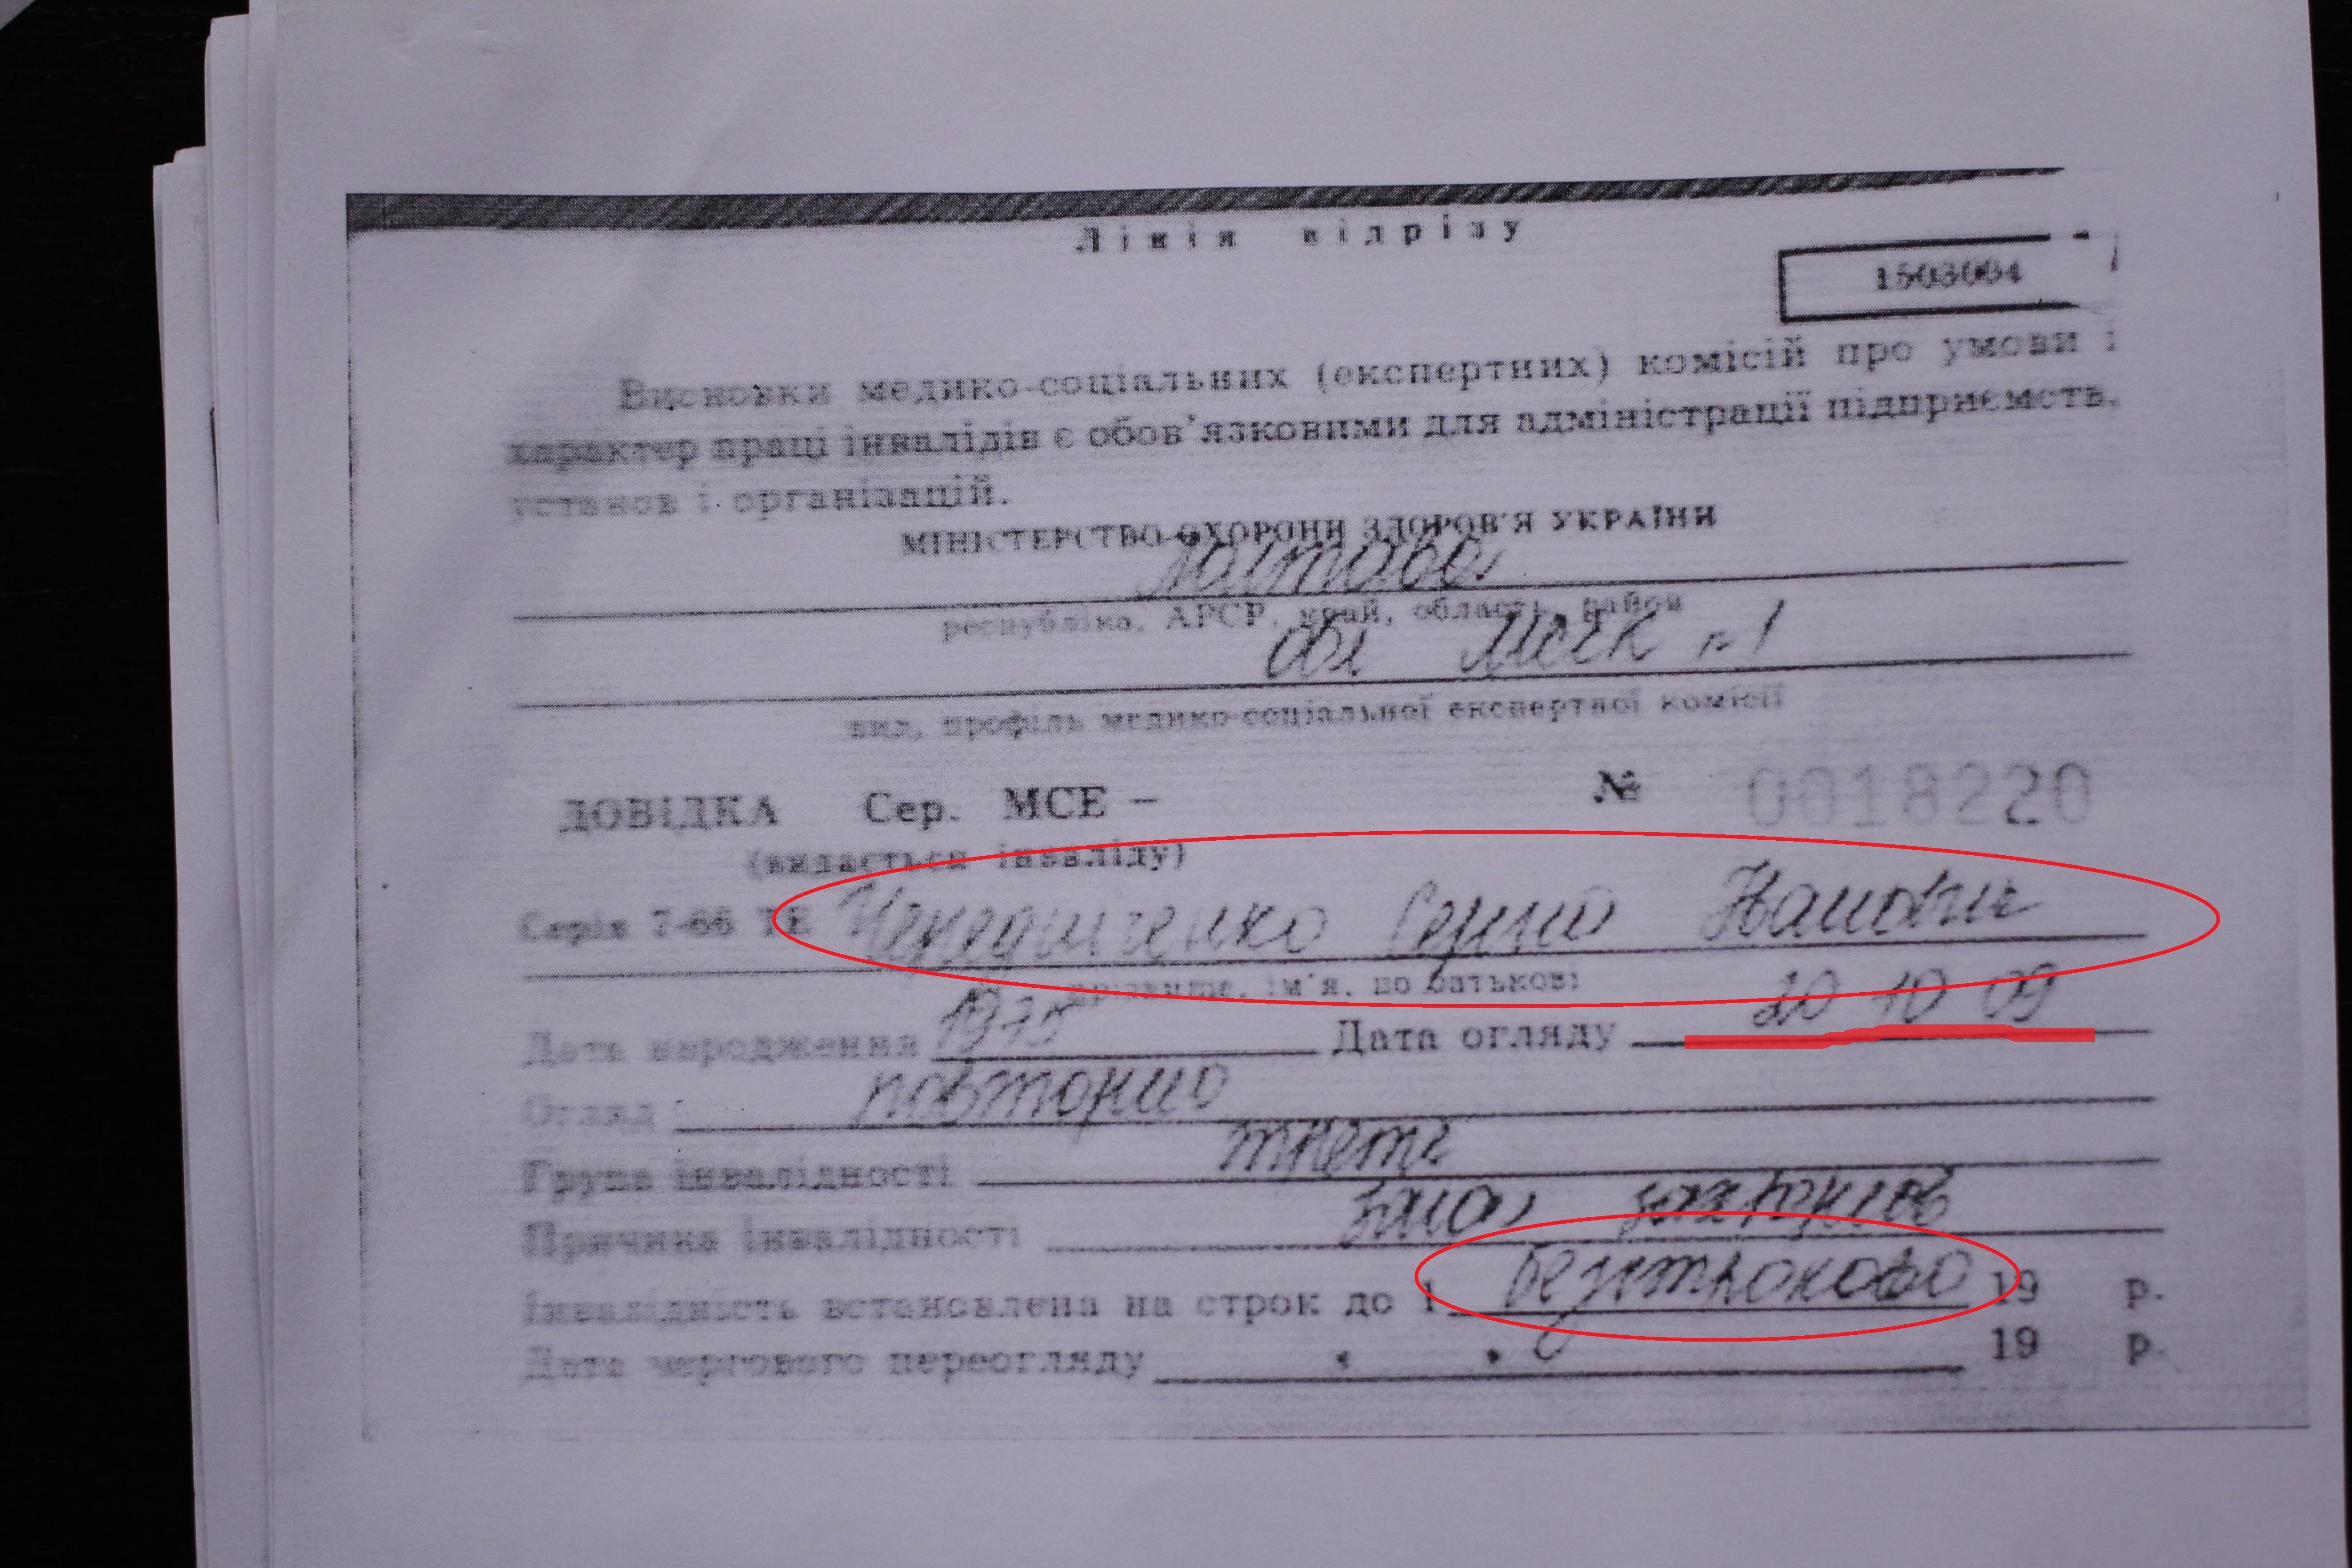 Лінія відрізу
1503004
Висновки медико-соціальних (експертних) комісій про умови і
характер праці інвалідів є обов'язковими для адміністрації підприємств,
установ і організацій.
МІНІСТЕРСТВО ОХОРОНИ ЗДОРОВ'Я УКРАЇНИ
Полтава
республіка, АРСР, край, область, район
обл МСЕК №1
вид, профіль медико-соціальної експертної комісії
ДОВІДКА Сер. МСЕ – № 0018220
(видається інваліду)
Серія 7-66 ТЕ Чередниченко Сергій
прізвище, ім'я, по батькові
Дата народження 1975 Дата огляду 20 10 09
Огляд повторно
Група інвалідності третя
Причина інвалідності заг захворюв
Інвалідність встановлена на строк до 1 безстроково 19 р.
Дата чергового переогляду « » 19 р.